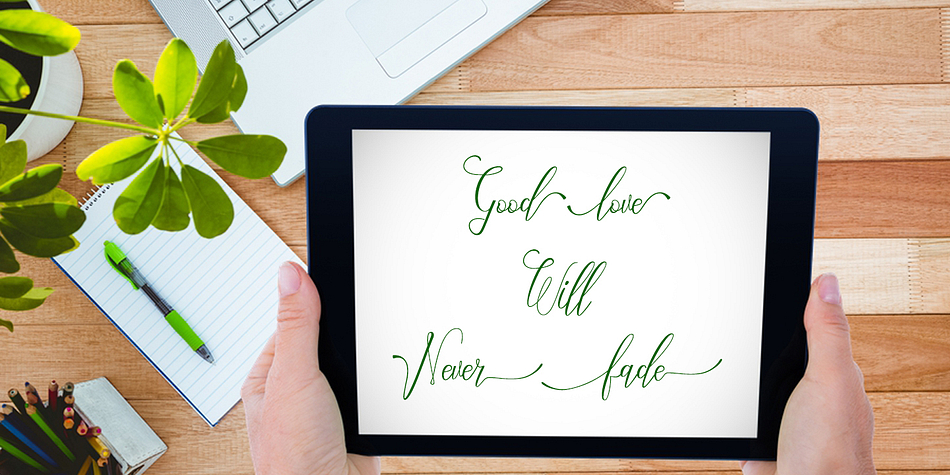 Good love
Will
Never fade